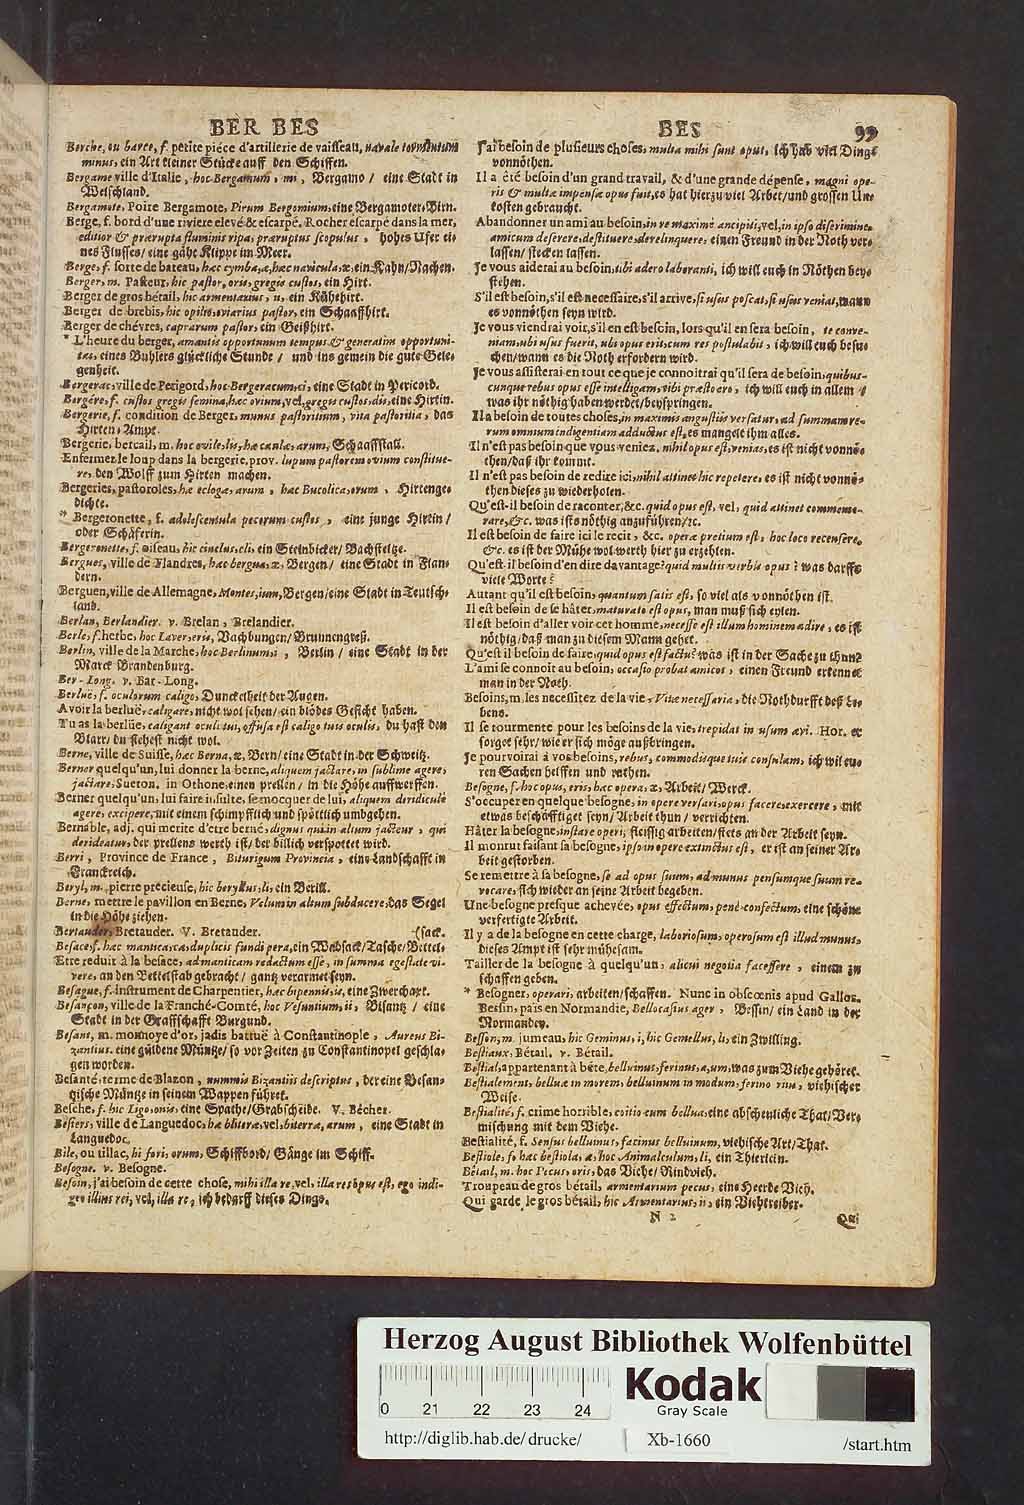 BER BES
Berche, ou barce, f. petite piéce d'artillerie de vaisseau, navale tormentum
minus, ein Art kleiner Stücke auff den Schiffen.
Bergame ville d'Italie, hoc Bergamum, mi, Bergamo / eine Stadt in
Welschland.
Bergamote, Poire Bergamote, Pirum Bergomium, eine Bergamoter-Birn.
Berge, f. bord d'une riviere elevé & escarpé, Rocher escarpé dans la mer,
editior & prærupta fluminis ripa, præruptus scopulus, hohes Ufer ei-
nes Flusses / eine gähe Klippe im Meer.
Berge, f. sorte de bateau, hæc cymba, æ, hæc navicula, æ, ein Kahn / Nachen.
Berger, m. Pasteur, hic pastor, oris, gregis custos, ein Hirt.
Berger de gros bétail, hic armentarius, ii, ein Kühehirt.
Berger de brebis, hic opilio, oviarius pastor, ein Schaaffhirt.
Berger de chévres, caprarum pastor, ein Geißhirt.
* L'heure du berger, amantis opportunum tempus & generatim opportuni-
tas, eines Buhlers glückliche Stunde / und ins gemein die gute Gele-
genheit.
Bergerac, ville de Perigord, hoc Bergeracum, ci, eine Stadt in Pericord.
Bergére, f. custos gregis femina, hæc ovium, vel, gregis custos, dis, eine Hirtin.
Bergerie, f. condition de Berger, munus pastoritium, vita pastoritia, das
Hirten-Ampt.
Bergerie, bercail, m. hoc ovile, lis, hæ caulæ, arum, Schaaffstall.
Enfermer le loup dans la bergerie, prov. lupum pastorem ovium constitue-
re, den Wolff zum Hirten machen.
Bergeries, pastoroles, hæ eclogæ, arum, hæc Bucolica, orum, Hirtenge-
dichte.
* Bergeronette, f. adolescentula pecorum custos, eine junge Hirtin /
oder Schäferin.
Bergeronette, f. oiseau, hic cinclus, cli, ein Steinbicker / Bachsteltze.
Bergues, ville de Flandres, hæc bergua, æ, Bergen / eine Stadt in Flan-
dern.
Berguen, ville de Allemagne, Montes, ium, Bergen / eine Stadt in Teutsch-
land.
Berlan, Berlandier. v. Brelan, Brelandier.
Berle, f. herbe, hoc Laver, eris, Bachbungen / Brunnengreß.
Berlin, ville de la Marche, hoc Berlinum, i, Berlin / eine Stadt in der
Marck Brandenburg.
Ber-Long. v. Bar-Long.
Berluë, f. oculorum caligo, Dunckelheit der Augen.
Avoir la berluë, caligare, nicht wol sehen / ein blödes Gesicht haben.
Tu as la berluë, caligant oculi tui, offusa est caligo tuis oculis, du hast den
Blarr / du siehest nicht wol.
Berne, ville de Suisse, hæc Berna, æ, Bern / eine Stadt in der Schweitz.
Berner quelqu'un, lui donner la berne, aliquem jactare, in sublime agere,
jactare, Sueton. in Othone, einen prellen / in die Höhe auffwerffen.
Berner quelqu'un, lui faire insulte, se mocquer de lui, aliquem deridiculo
agere, excipere, mit einem schimpfflich und spöttlich umbgehen.
Bernable, adj. qui merite d'etre berné, dignus qui in altum jactetur, qui
derideatur, der prellens werth ist / der billich verspottet wird.
Berri, Province de France, Biturigum Provincia, eine Landschafft in
Franckreich.
Beryl, m. pierre précieuse, hic beryllus, li, ein Berill.
Berne, mettre le pavillon en Berne, Velum in altum subducere, das Segel
in die Höhe ziehen.
Bertauder, Bretauder. V. Bretauder. (sack.
Besace, f. hæc mantica, cæ, duplicis fundi pera, ein Wadsack / Tasche / Bettel-
Etre reduit à la besace, ad manticam redactum esse, in summa egestate vi-
vere, an den Bettelstab gebracht / gantz verarmet seyn.
Besague, f. instrument de Charpentier, hæc bipennis, is, eine Zwerchaxt.
Besançon, ville de la Franché-Comté, hoc Vesuntium, ii, Bisantz / eine
Stadt in der Graffschafft Burgund.
Besant, m. monnoye d'or, jadis battuë à Constantinople, Aureus Bi-
zantius. eine güldene Müntze / so vor Zeiten zu Constantinopel geschla-
gen worden.
Besanté, terme de Blazon, nummis Bizantiis descriptus, der eine Besan-
tische Müntze in seinem Wappen führet.
Besche, f. hic Ligo, onis, eine Spathe / Grabscheide. V. Bécher.
Besiers, ville de Languedoc, hæ bliteræ, vel, biterræ, arum, eine Stadt in
Languedoc.
Bile, ou tillac, hi fori, orum, Schiffbord / Gänge im Schiff.
Besogne. v. Besogne.
Besoin, j'ai besoin de cette chose, mihi illa re, vel, illa res opus est, ego indi-
geo illius rei, vel, illa re, ich bedarff dieses Dings.
BES 99
J'ai besoin de plusieurs choses, multa mihi sunt opus, ich hab viel Dings
vonnöthen.
Il a été besoin d'un grand travail, & d'une grande dépense, magni ope-
ris & multæ impensæ opus fuit, es hat hierzu viel Arbeit / und grossen Un-
kosten gebraucht.
Abandonner un ami au besoin, in re maximè ancipiti, vel, in ipso discrimine,
amicum deserere, destituere, derelinquere, einen Freund in der Noth ver-
lassen / stecken lassen.
Je vous aiderai au besoin, tibi adero laboranti, ich will euch in Nöthen bey-
stehen.
S'il est besoin, s'il est necessaire, s'il arrive, si usus poscat, si usus veniat, wann
es vonnöthen seyn wird.
Je vous viendrai voir, s'il en est besoin, lors qu'il en sera besoin, te conve-
niam, ubi usus fuerit, ubi opus erit, cum res postulabit, ich will euch besu-
chen / wann es die Noth erfordern wird.
Je vous assisterai en tout ce que je connoitrai qu'il sera de besoin, quibus-
cunque rebus opus esse intelligam, tibi præsto ero, ich will euch in allem /
was ihr nöthig haben werdet / beyspringen.
Il a besoin de toutes choses, in maximis angustiis versatur, ad summam re-
rum omnium indigentiam adductus est, es mangelt ihm alles.
Il n'est pas besoin que vous veniez, nihil opus est, venias, es ist nicht vonnö-
then / daß ihr kommt.
Il n'est pas besoin de redire ici, nihil attinet hic repetere, es ist nicht vonnö-
then dieses zu wiederholen.
Qu'est-il besoin de raconter, &c. quid opus est, vel, quid attinet commemo-
rare, &c. was ists nöthig anzuführen / ꝛc.
Il est besoin de faire ici le recit, &c. operæ pretium est, hoc loco recensere,
&c. es ist der Mühe wol werth hier zu erzehlen.
Qu'est-il besoin d'en dire davantage? quid multis verbis opus? was darffs
viele Worte?
Autant qu'il est besoin, quantum satis est, so viel als vonnöthen ist.
Il est besoin de se hâter, maturato est opus, man muß sich eylen.
Il est besoin d'aller voir cet homme, necesse est illum hominem adire, es ist
nöthig / daß man zu diesem Mann gehet.
Qu'est il besoin de faire, quid opus est factu? was ist in der Sache zu thun?
L'ami se connoit au besoin, occasio probat amicos, einen Freund erkennet
man in der Noth.
Besoins, m. les necessitez de la vie, Vitæ necessaria, die Nothdurfft deß Le-
bens.
Il se tourmente pour les besoins de la vie, trepidat in usum ævi. Hor. er
sorget sehr / wie er sich möge außbringen.
Je pourvoirai à vos besoins, rebus, commodisque tuis consulam, ich wil eu-
ren Sachen helffen und rathen.
Besogne, f. hoc opus, eris, hæc opera, æ, Arbeit / Werck.
S'occuper en quelque besogne, in opere versari, opus facere, exercere, mit
etwas beschäfftiget seyn / Arbeit thun / verrichten.
Hâter la besogne, instare operi, fleissig arbeiten / stets an der Arbeit seyn.
Il mourut faisant sa besogne, ipso in opere extinctus est, er ist an seiner Ar-
beit gestorben.
Se remettre à sa besogne, se ad opus suum, ad munus pensumque suum re-
vocare, sich wieder an seine Arbeit begeben.
Une besogne presque achevée, opus effectum, penè confectum, eine schöne
verfertigte Arbeit.
Il y a de la besogne en cette charge, laboriosum, operosum est illud munus,
dieses Ampt ist sehr mühesam.
Tailler de la besogne à quelqu'un, alicui negotia facessere, einem zu
schaffen geben.
* Besogner, operari, arbeiten / schaffen. Nunc in obscœnis apud Gallos.
Bessin, païs en Normandie, Bellocassius ager, Bessin / ein Land in der
Normandey.
Besson, m. jumeau, hic Geminus, i, hic Gemellus, li, ein Zwilling.
Bestiaux, Bétail. v. Bétail.
Bestial, appartenant à bête, belluinus, ferinus, a, um, was zum Viehe gehöret.
Bestialement, belluæ in morem, belluinum in modum, ferino ritu, viehischer
Weise.
Bestialité, f. crime horrible, coitio cum bellua, eine abscheuliche That / Ver-
mischung mit dem Viehe.
Bestialité, f. Sensus belluinus, facinus belluinum, viehische Art / That.
Bestiole, f. hæc bestiola, æ, hoc Animalculum, li, ein Thierlein.
Bétail, m. hoc Pecus, oris, das Viehe / Rindvieh.
Troupeau de gros bétail, armentarium pecus, eine Heerde Vieh.
Qui garde le gros bétail, hic Armentarius, ii, ein Viehtreiber.
N 2 Qui
Herzog August Bibliothek Wolfenbüttel
0 21 22 23 24
Kodak
Gray Scale
http://diglib.hab.de/drucke/ Xb-1660 /start.htm